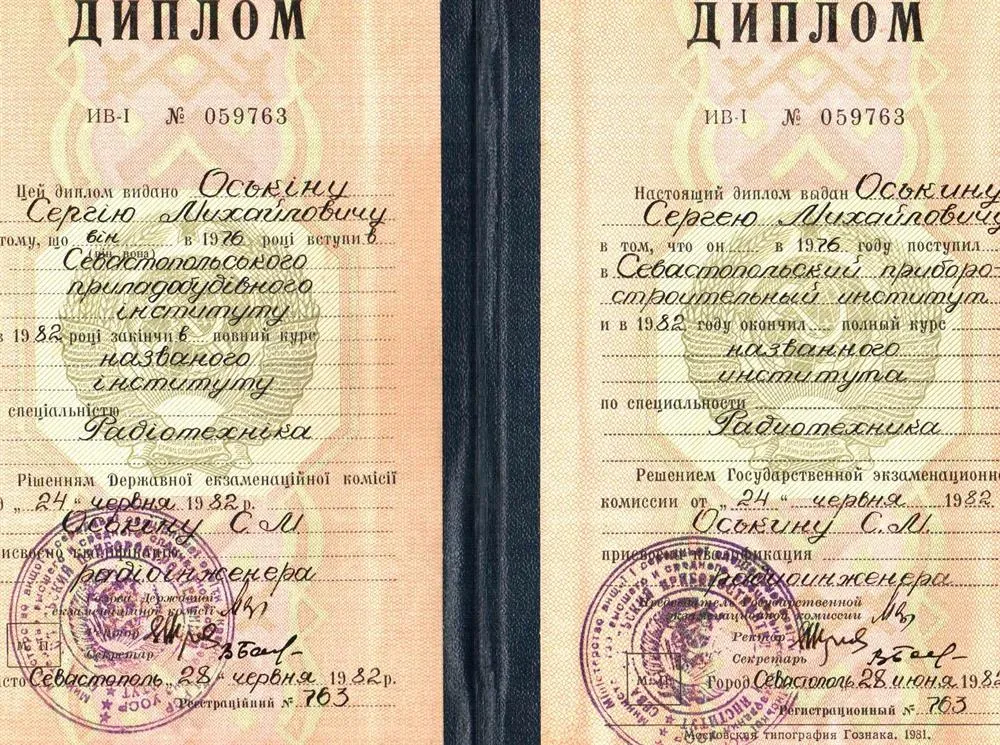 ДИПЛОМ
ИВ-I № 059763
Цей диплом видано Оськіну
Сергію Михайловичу
тому, що він в 1976 році вступив
(він, вона)
Севастопольського
приладобудівного
інституту
в 1982 році закінчив повний курс
названого
інституту
спеціальністю
Радіотехніка
Рішенням Державної екзаменаційної комісії
д „24“ червня 1982 р.
Оськину С.М.
исвоено кваліфікацію
радіоінженера
Голова Державної
екзаменаційної комісії
Ректор
Секретар
М. П.
сто Севастополь „28“ червня 1982 р.
Реєстраційний № 763
ДИПЛОМ
ИВ-I № 059763
Настоящий диплом выдан Оськину
Сергею Михайловичу
в том, что он в 1976 году поступил
в Севастопольский приборо-
строительный институт
и в 1982 году окончил полный курс
названного
института
по специальности
Радиотехника
Решением Государственной экзаменационн
комиссии от „24“ червня 1982
Оськину С.М.
присвоена квалификация
радиоинженера
Председатель Государственной
экзаменационной комиссии
Ректор
Секретарь
М. П.
Город Севастополь 28 июня 1982
Регистрационный № 763
Московская типография Гознака. 1981.